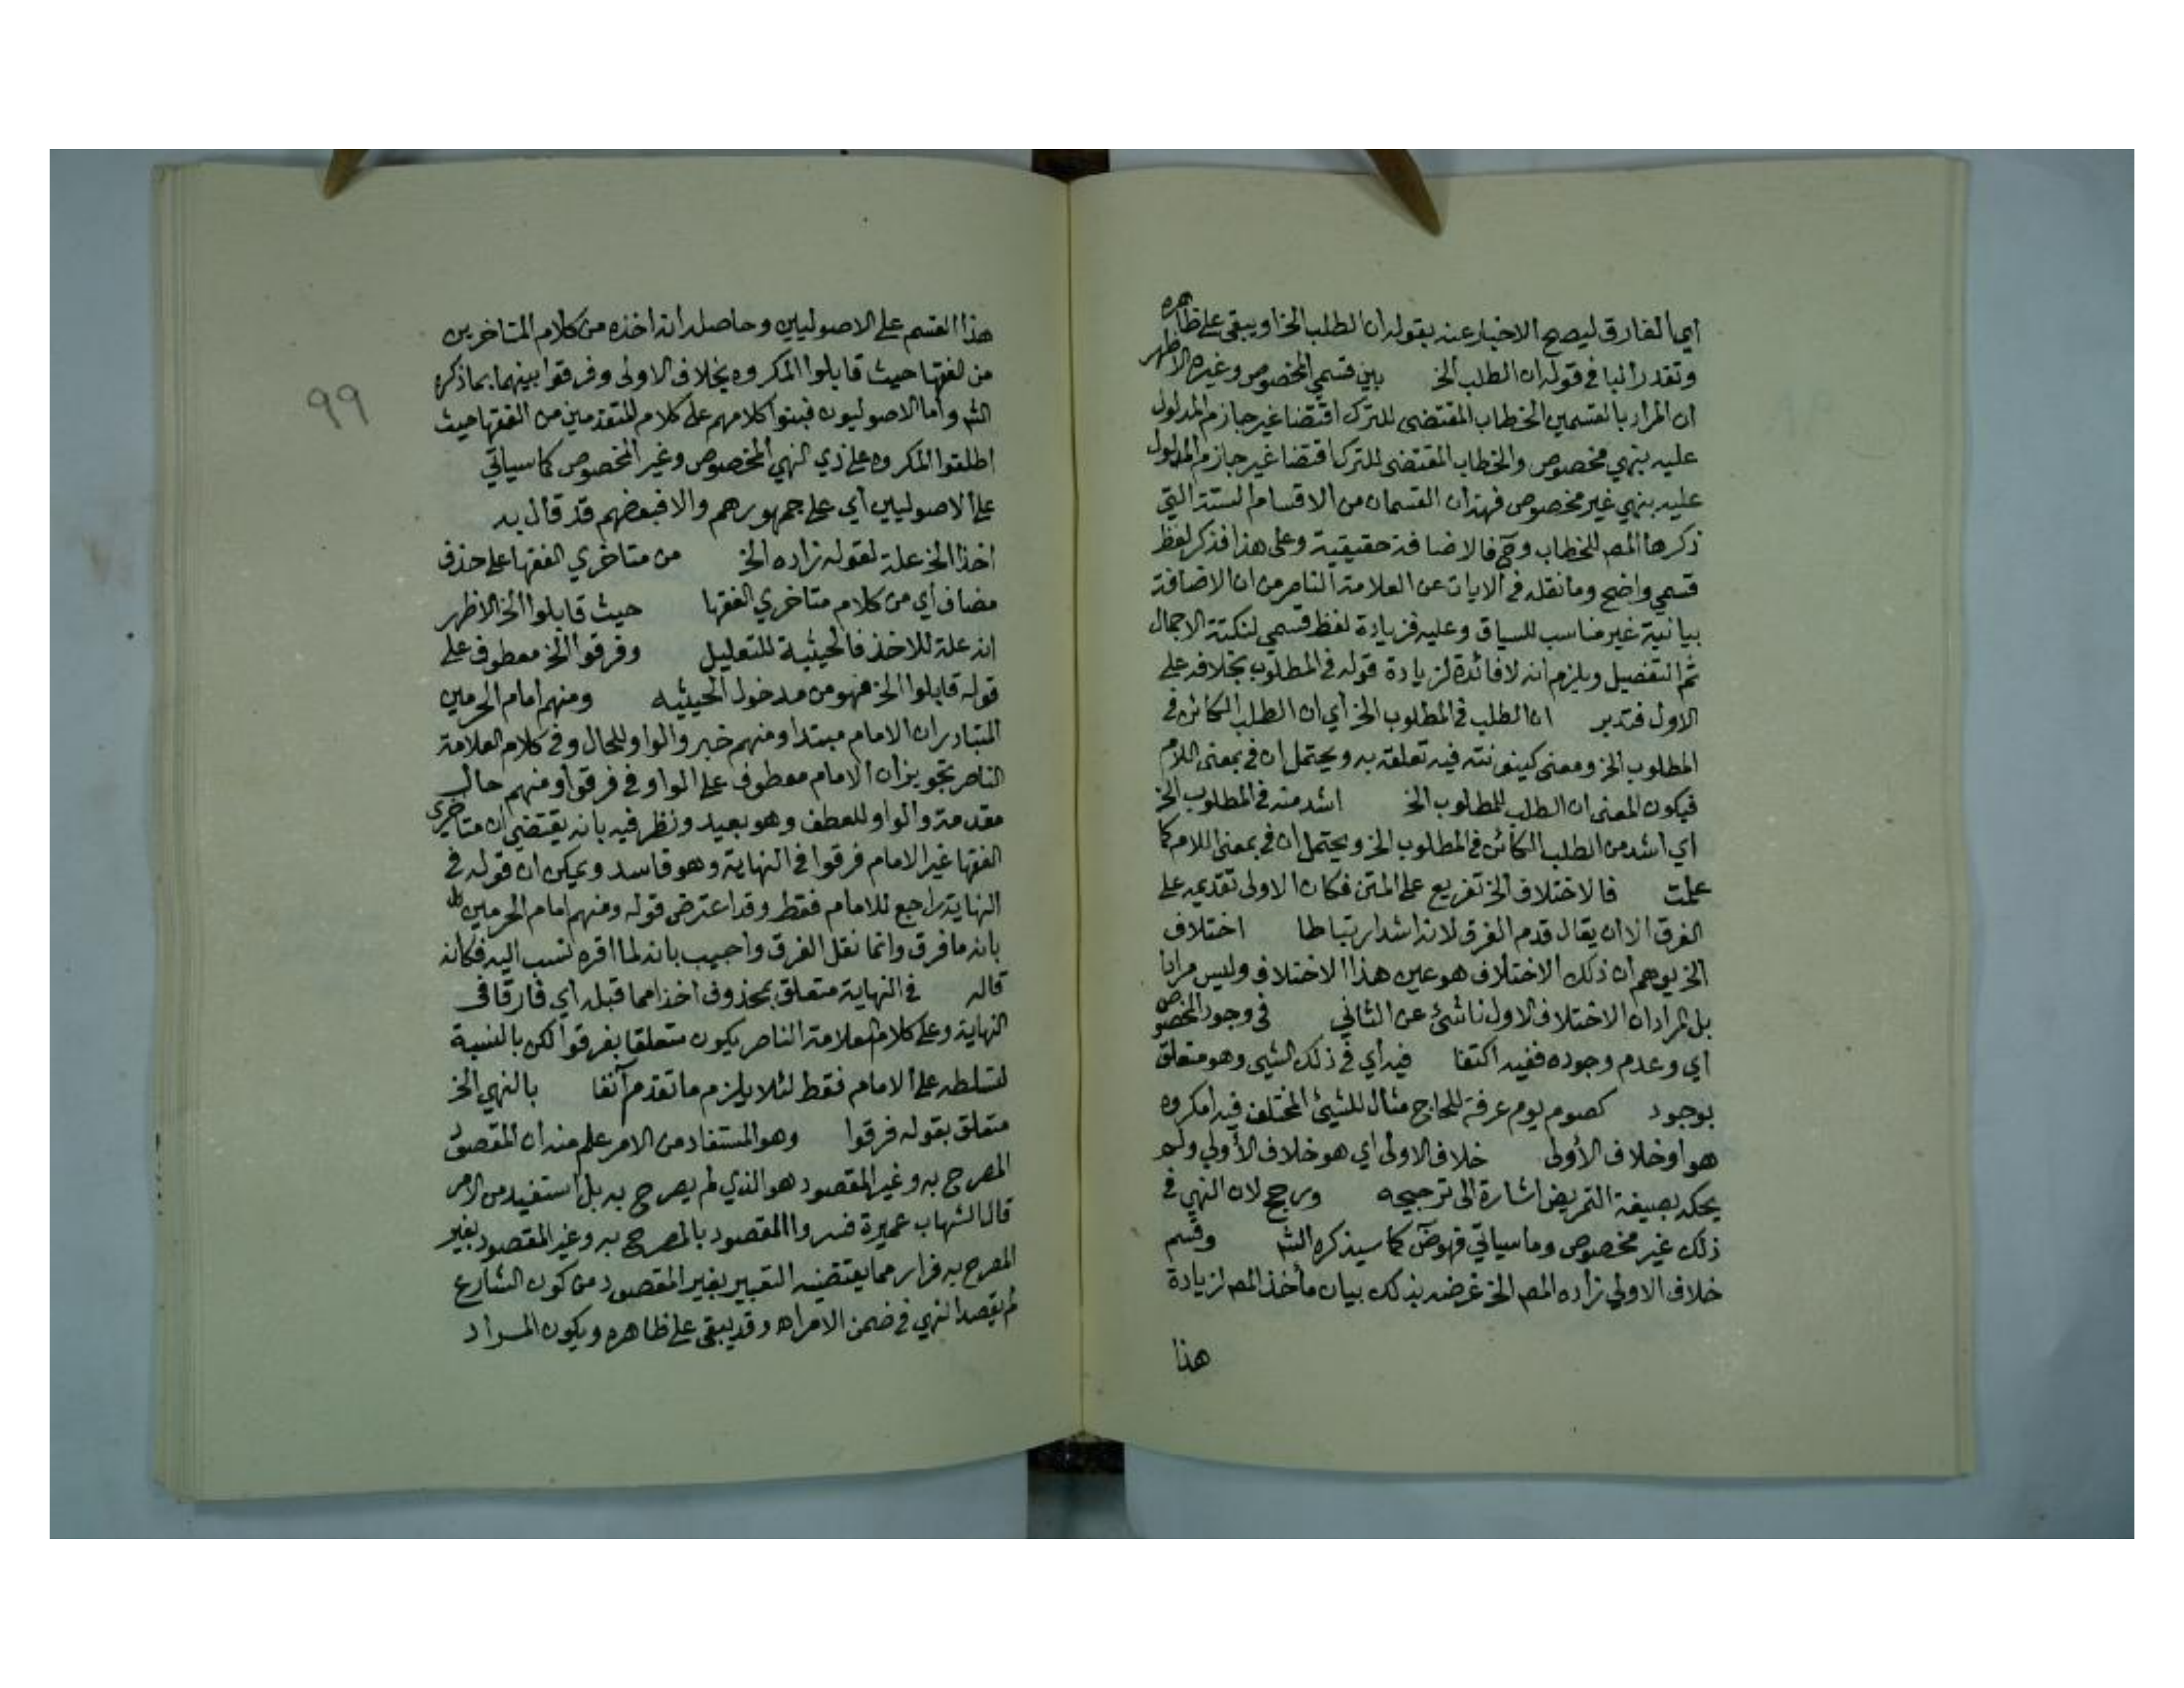 أي الفارق ليصح الاخبار عنه بقوله ان الطلب الخ او يبقى على ظاهره
وتقدر البا في قوله ان الطلب الخ بين قسمي المخصوص وغيره الاظهر
ان المراد بالقسمين الخطاب المقتضى للترك اقتضا غير جازم المدلول
عليه بنهي مخصوص والخطاب المقتضى للترك اقتضا غير جازم المدلول
عليه بنهي غير مخصوص فهذان القسمان من الاقسام الستة التي
ذكرها المصـ للخطاب وح فالاضافة حقيقية وعلى هذا فذكر لفظ
قسمي واضح وما نقله في الايات عن العلامة الناصر من ان الاضافة
بيانية غير مناسب للسياق وعليه فزيادة لفظ قسمي لنكتة الاجمال
ثم التفصيل ويلزم انه لا فائدة لزيادة قوله في المطلوب بخلافه على
الاول فتدبر ان الطلب في المطلوب الخ أي ان الطلب الكائن في
المطلوب الخ ومعنى كينونته فيه تعلقه به ويحتمل ان في بمعنى اللام
فيكون المعنى ان الطلب للمطلوب الخ اشد منه في المطلوب الخ
أي اشد من الطلب الكائن في المطلوب الخ ويحتمل ان في بمعنى اللام كما
علمت فالاختلاف الخ تفريع على المتن فكان الاولى تقديمه على
الفرق الا ان يقال قدم الفرق لانه اشد ارتباطا اختلاف
الخ يوهم ان ذلك الاختلاف هو عين هذا الاختلاف وليس مرادا
بل المراد ان الاختلاف الاول ناشئ عن الثاني في وجود المخصوص
أي وعدم وجوده ففيه اكتفا فيه أي في ذلك الشيى وهو متعلق
بوجود كصوم يوم عرفة للحاج مثال للشيئ المختلف فيه امكروه
هو او خلاف الأولى خلاف الاولى أي هو خلاف الأولي ولم
يحكه بصيغة التمريض اشارة الى ترجيحه ورجح لان النهي في
ذلك غير مخصوص وما سياتي فهو ض كما سيذكره الشـ وقسم
خلاف الاولي زاده المصـ الخ غرضه بذلك بيان مأخذ المصـ لزيادة
هذا
هذا القسم على الاصوليين وحاصله انه اخذه من كلام المتاخرين
من الفقها حيث قابلوا المكروه بخلاف الاولى وفرقوا بينهما بما ذكره
الشـ وأما الاصوليون فبنوا كلامهم على كلام المتقدمين من الفقها حيث
اطلقوا المكروه على ذي النهي المخصوص وغير المخصوص كما سياتي
على الاصوليين أي على جمهورهم والا فبعضهم قد قال به
اخذا الخ علة لقوله زاده الخ من متاخري الفقها على حذف
مضاف أي من كلام متاخري الفقها حيث قابلوا الخ الاظهر
انه علة للاخذ فالحيثية للتعليل وفرقوا الخ معطوف على
قوله قابلوا الخ فهو من مدخول الحيثيه ومنهم امام الحرمين
المتبادر ان الامام مبتدا ومنهم خبر والواو للحال وفي كلام العلامة
الناصر تجويز ان الامام معطوف على الواو في فرقوا ومنهم حال
مقدمة والواو للعطف وهو بعيد ونظر فيه بانه يقتضي ان متاخري
الفقها غير الامام فرقوا في النهاية وهو فاسد ويمكن ان قوله في
النهاية راجع للامام فقط وقد اعترض قوله ومنهم امام الحرمين
بانه ما فرق وانما نقل الفرق واجيب بانه لما اقره نسب اليه فكانه
قاله في النهاية متعلق بمحذوف اخذا مما قبله أي فارقا في
النهاية وعلى كلام العلامة الناصر يكون متعلقا بفرقوا لكن بالنسبة
لتسلطه على الامام فقط لئلا يلزم ما تقدم آنفا بالنهي الخ
متعلق بقوله فرقوا وهو المستفاد من الامر علم منه ان المقصود
المصرح به وغير المقصود هو الذي لم يصرح به بل استفيد من الامر
قال الشهاب عميرة فسروا المقصود بالمصرح به وغير المقصود بغير
المصرح به فرارا مما يقتضيه التعبير بغير المقصود من كون الشارع
لم يقصد النهي في ضمن الامر اه وقد يبقى على ظاهره ويكون المراد
٩٩